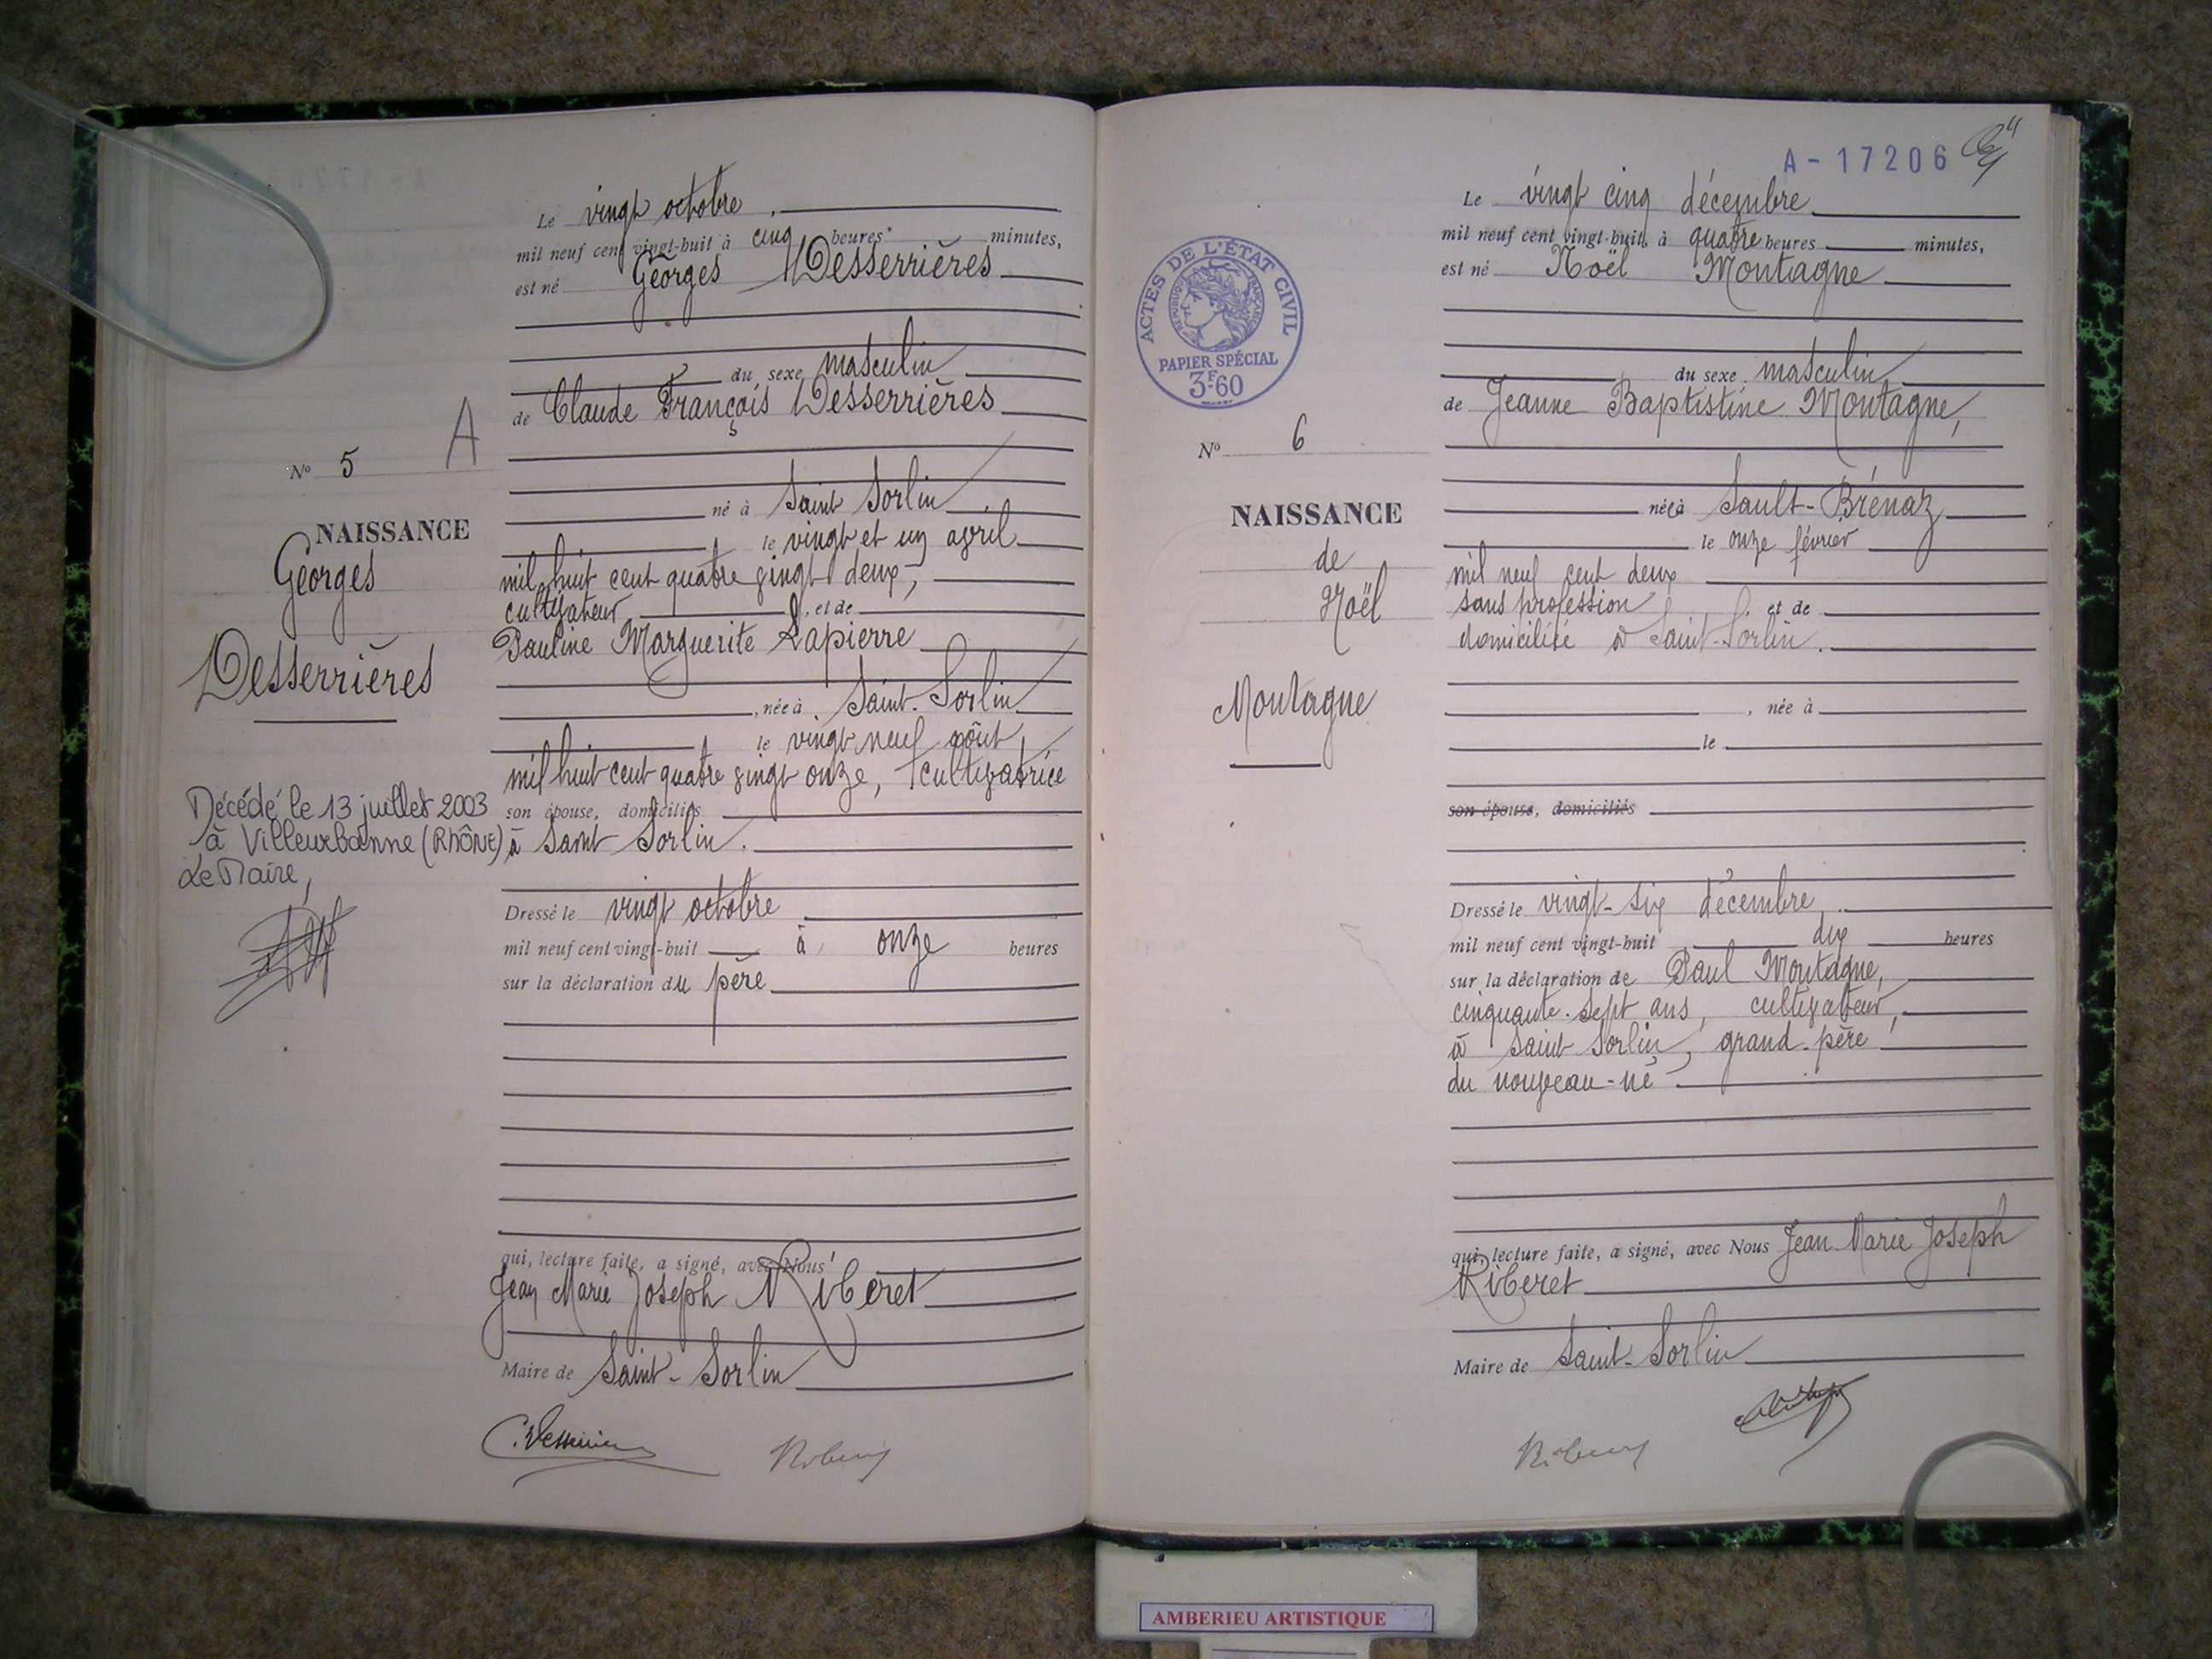 Le vingt octobre
mil neuf cent vingt-huit à cinq heures minutes,
est né Georges Desserrières
du sexe masculin
de Claude François Desserrières
A
N° 5
né à Saint Sorlin
NAISSANCE
le vingt et un avril
Georges
mil huit cent quatre vingt deux,
cultivateur, et de
Desserrières
Pauline Marguerite Lapierre
, née à Saint-Sorlin
le vingt neuf août
mil huit cent quatre vingt onze, cultivatrice
Décédé le 13 juillet 2003
à Villeurbanne (RHÔNE)
Le Maire,
son épouse, domiciliés
à Saint Sorlin.
Dressé le vingt octobre
mil neuf cent vingt-huit à onze heures
sur la déclaration du père
qui, lecture faite, a signé, avec Nous
Jean Marie Joseph Riberet
Maire de Saint-Sorlin
C. Desserrières
A-17206
Le vingt cinq décembre
mil neuf cent vingt-huit, à quatre heures minutes,
est né Noël Montagne
ACTES DE L'ÉTAT CIVIL
RÉPUBLIQUE FRANÇAISE
PAPIER SPÉCIAL
3F-60
du sexe masculin
de Jeanne Baptistine Montagne,
N° 6
NAISSANCE
de
Noël
Montagne
née à Sault-Brénaz
le onze février
mil neuf cent deux
sans profession, et de
domiciliée à Saint-Sorlin.
, née à
le
son épouse, domiciliés
Dressé le vingt-six décembre,
mil neuf cent vingt-huit dix heures
sur la déclaration de Paul Montagne,
cinquante-sept ans, cultivateur,
à Saint Sorlin, grand-père
du nouveau-né
qui, lecture faite, a signé, avec Nous Jean Marie Joseph
Riberet
Maire de Saint-Sorlin
AMBERIEU ARTISTIQUE